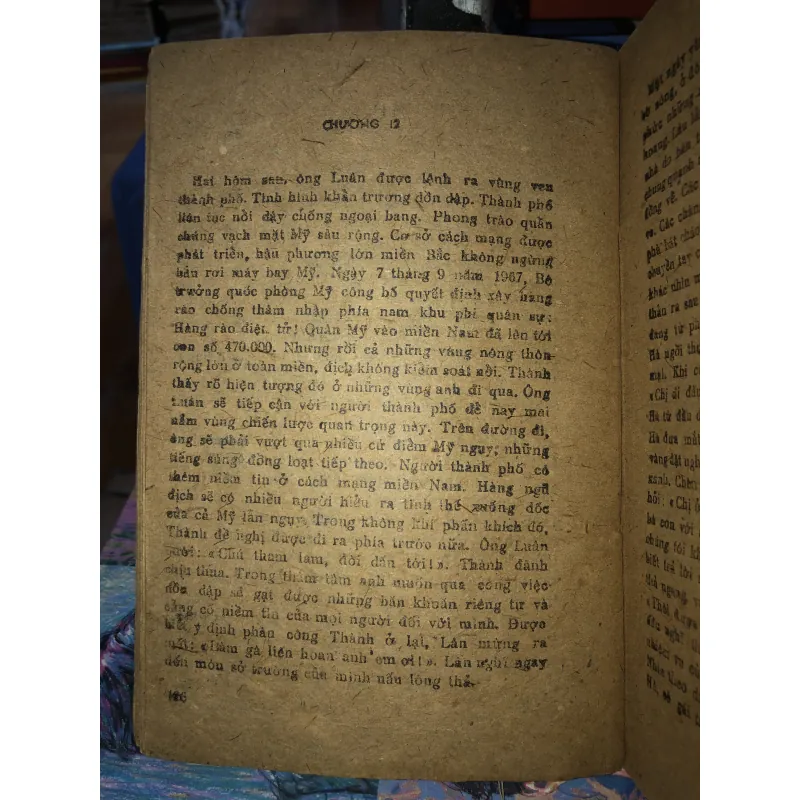 CHƯƠNG 12
Hai hôm sau, ông Luân được lệnh ra vùng ven
thành phố. Tình hình khẩn trương dồn dập. Thành phố
liên tục nổi dậy chống ngoại bang. Phong trào quần
chúng vạch mặt Mỹ sâu rộng. Cơ sở cách mạng được
phát triển, hậu phương lớn miền Bắc không ngừng
bắn rơi máy bay Mỹ. Ngày 7 tháng 9 năm 1967, Bộ
trưởng quốc phòng Mỹ công bố quyết định xây hàng
rào chống thâm nhập phía nam khu phi quân sự:
Hàng rào điện tử! Quân Mỹ vào miền Nam đã lên tới
con số 470.000. Nhưng rồi cả những vùng nông thôn
rộng lớn ở toàn miền, địch không kiểm soát nổi. Thành
thấy rõ hiện tượng đó ở những vùng anh đi qua. Ông
Luân sẽ tiếp cận với người thành phố để nay mai
nắm vùng chiến lược quan trọng này. Trên đường đi,
ông sẽ phải vượt qua nhiều cứ điểm Mỹ ngụy; những
tiếng súng đồng loạt tiếp theo. Người thành phố có
thêm niềm tin ở cách mạng miền Nam. Hàng ngũ
địch sẽ có nhiều người hiểu ra tình thế xuống dốc
của cả Mỹ lẫn ngụy. Trong không khí phấn khích đó,
Thành đề nghị được đi ra phía trước nữa. Ông Luân
cười: «Chú tham lam, đời dân tới!». Thành đành
chịu thua. Trong thâm tâm anh muốn qua công việc
dồn dập sẽ gạt được những băn khoăn riêng tư và
củng cố niềm tin của mọi người đối với mình. Được
ý định phân công Thành ở lại, Lân mừng ra
mặt: «Làm gà liên hoan anh em ơi!». Lân nghĩ ngay
đến món sở trường của mình nấu lòng thả.
126
Một ngày
bờ sông, ở
phức những
hoang.
nhà do
chung quanh
đồng về. Các
Các chàm
phá bắt
chuyền tay
khác nhìn
thần ra sau
đang từ
Hà ngồi
mại. Khi
«Chị đi
Hà từ đầu
Hà đưa mắt
vàng đặt
xanh.
hỏi: «Chị
bà con với
chúng tôi
biết trả lời